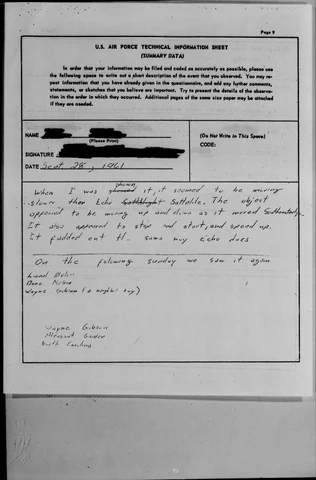 Page 9
U.S. AIR FORCE TECHNICAL INFORMATION SHEET
(SUMMARY DATA)
In order that your information may be filed and coded as accurately as possible, please use
the following space to write out a short description of the event that you observed. You may re-
peat information that you have already given in the questionnaire, and add any further comments,
statements, or sketches that you believe are important. Try to present the details of the observa-
tion in the order in which they occurred. Additional pages of the same size paper may be attached
if they are needed.
NAME
(Please Print)
SIGNATURE
DATE Sept. 28, 1961
(Do Not Write in This Space)
CODE:
shown
When I was it, it seemed to be moving
slower then Echo Sattalite. The object
appeared to be moving up and down as it moved
It also appeared to stop and start, and speed up.
It fadded out th. same way Echo does
On the following sunday we saw it again
Wayne Gibson (a neighbor boy)
Wayne Gibson
Pleasant Garden
North Carolina